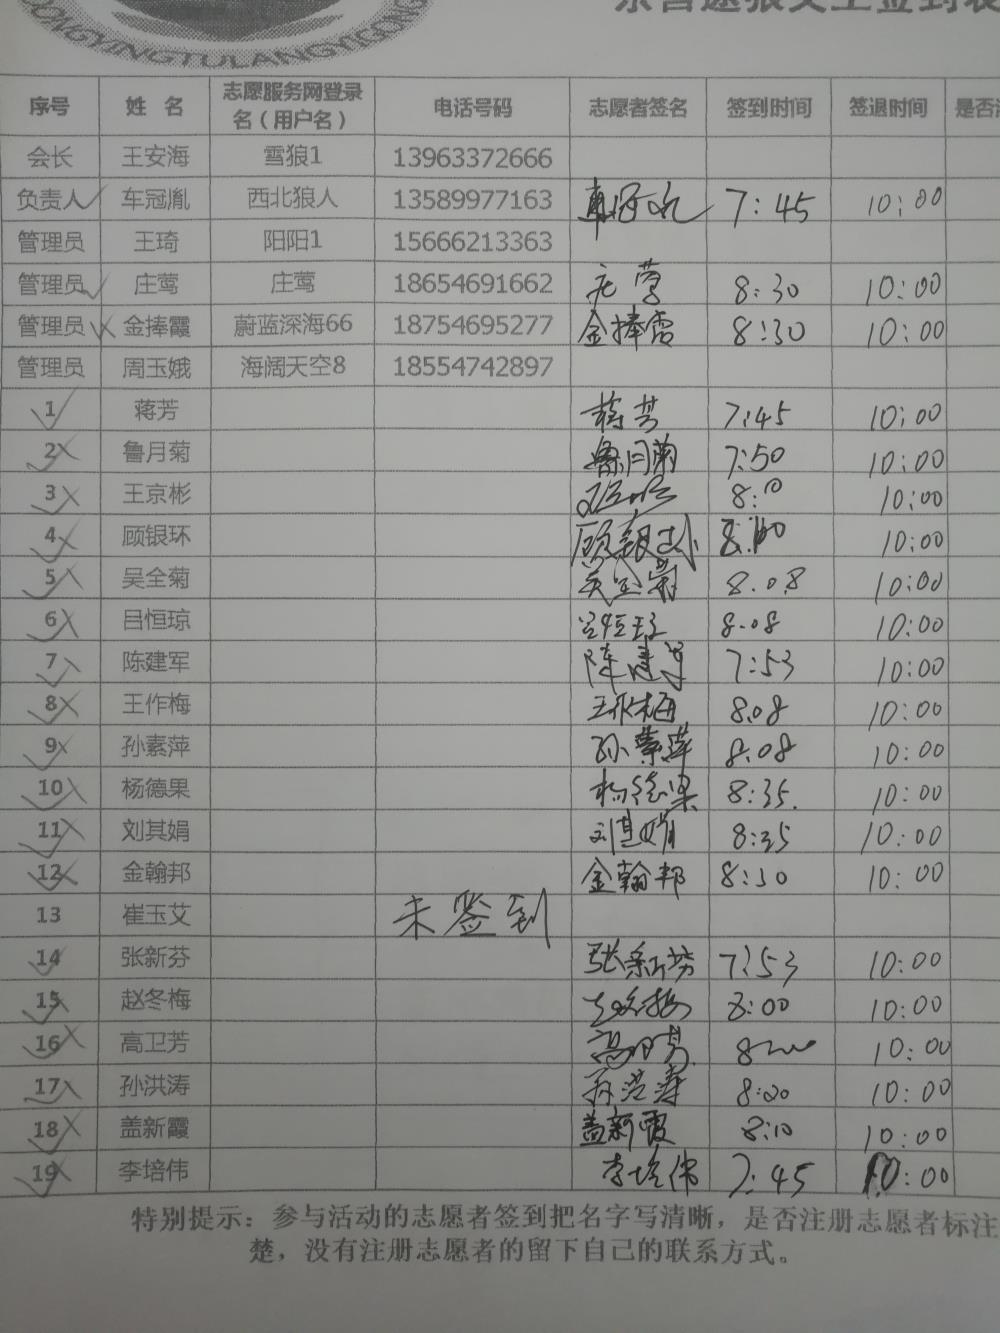 DONGYINGTULANGYIGONG
东营途狼义工签到表
序号 姓 名 志愿服务网登录名（用户名） 电话号码 志愿者签名 签到时间 签退时间 是否
会长 王安海 雪狼1 13963372666
负责人 车冠胤 西北狼人 13589977163 车冠胤 7:45 10:00
管理员 王琦 阳阳1 15666213363
管理员 庄莺 庄莺 18654691662 庄莺 8:30 10:00
管理员 金捧霞 蔚蓝深海66 18754695277 金捧霞 8:30 10:00
管理员 周玉娥 海阔天空8 18554742897
1 蒋芳 蒋芳 7:45 10:00
2 鲁月菊 鲁月菊 7:50 10:00
3 王京彬 8:10 10:00
4 顾银环 顾银环 10:00
5 吴全菊 吴全菊 8.08 10:00
6 吕恒琼 吕恒琼 8.08 10:00
7 陈建军 陈建军 7:53 10:00
8 王作梅 王作梅 8.08 10:00
9 孙素萍 孙素萍 8.08 10:00
10 杨德果 杨德果 8:35. 10:00
11 刘其娟 刘其娟 8:35 10:00
12 金翰邦 金翰邦 8:30 10:00
13 崔玉艾 未签到
14 张新芬 张新芬 7:53 10:00
15 赵冬梅 赵冬梅 8:00 10:00
16 高卫芳 高卫芳 10:00
17 孙洪涛 孙洪涛 8:20 10:00
18 盖新霞 盖新霞 8:10 10:00
19 李培伟 李培伟 7:45 10:00
特别提示：参与活动的志愿者签到把名字写清晰，是否注册志愿者标注
楚，没有注册志愿者的留下自己的联系方式。